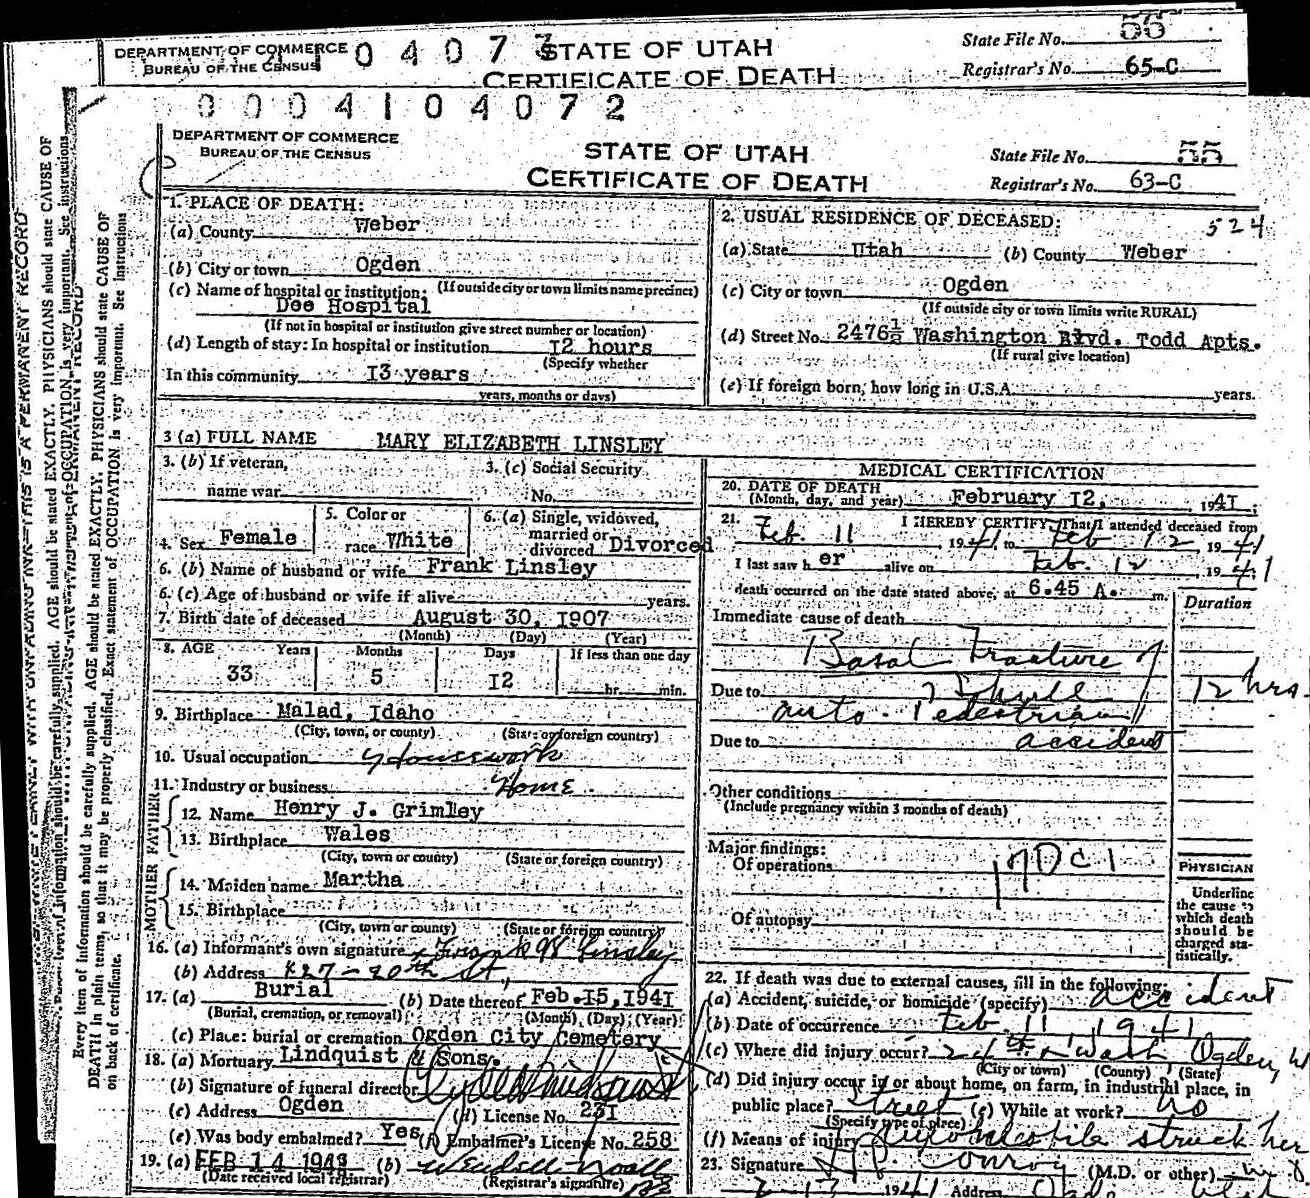 DEPARTMENT OF COMMERCE
BUREAU OF THE CENSUS
0 4 0 7 3
STATE OF UTAH
CERTIFICATE OF DEATH
State File No. 56
Registrar's No. 65-C
0 0 0 4 1 0 4 0 7 2
DEPARTMENT OF COMMERCE
BUREAU OF THE CENSUS
STATE OF UTAH
CERTIFICATE OF DEATH
State File No. 55
Registrar's No. 63-C
1. PLACE OF DEATH:
(a) County Weber
(b) City or town Ogden
(If outside city or town limits name precinct)
(c) Name of hospital or institution:
Dee Hospital
(If not in hospital or institution give street number or location)
(d) Length of stay: In hospital or institution 12 hours
(Specify whether
In this community 13 years
years, months or days)
2. USUAL RESIDENCE OF DECEASED:
524
(a) State Utah (b) County Weber
(c) City or town Ogden
(If outside city or town limits write RURAL)
(d) Street No. 2476½ Washington Blvd. Todd Apts.
(If rural give location)
(e) If foreign born, how long in U.S.A. years.
3 (a) FULL NAME MARY ELIZABETH LINSLEY
3. (b) If veteran,
name war
3. (c) Social Security
No.
4. Sex Female
5. Color or
race White
6. (a) Single, widowed,
married or
divorced Divorced
6. (b) Name of husband or wife Frank Linsley
6. (c) Age of husband or wife if alive years.
7. Birth date of deceased August 30, 1907
(Month) (Day) (Year)
8. AGE Years Months Days If less than one day
33 5 12 hr. min.
9. Birthplace Malad, Idaho
(City, town, or county) (State or foreign country)
10. Usual occupation Housework
11. Industry or business Home
FATHER
12. Name Henry J. Grimley
13. Birthplace Wales
(City, town or county) (State or foreign country)
MOTHER
14. Maiden name Martha
15. Birthplace
(City, town or county) (State or foreign country)
16. (a) Informant's own signature Linsley
(b) Address 20th St.
17. (a) Burial (b) Date thereof Feb. 15, 1941
(Burial, cremation, or removal) (Month) (Day) (Year)
(c) Place: burial or cremation Ogden City Cemetery
18. (a) Mortuary Lindquist & Sons.
(b) Signature of funeral director
(c) Address Ogden (d) License No. 231
(e) Was body embalmed? Yes (f) Embalmer's License No. 258
19. (a) FEB 14 (b) Wendell Noall
(Date received local registrar) (Registrar's signature)
MEDICAL CERTIFICATION
20. DATE OF DEATH
(Month, day, and year) February 12, 1941.
21. I HEREBY CERTIFY, That I attended deceased from
Feb. 11 1941, to Feb 12 1941
I last saw h er alive on Feb. 12 1941
death occurred on the date stated above, at 6.45 A. m.
Duration
Immediate cause of death
Basal Fracture of
Due to Skull 12 hrs.
auto-Pedestrian
Due to accident
Other conditions
(Include pregnancy within 3 months of death)
Major findings:
Of operations
Of autopsy
PHYSICIAN
Underline
the cause to
which death
should be
charged sta-
tistically.
22. If death was due to external causes, fill in the following:
(a) Accident, suicide, or homicide (specify) accident
(b) Date of occurrence Feb. 11, 1941
(c) Where did injury occur? 24th & Wash Ogden,
(City or town) (County) (State)
(d) Did injury occur in or about home, on farm, in industrial place, in
public place? Street (e) While at work? no
(Specify type of place)
(f) Means of injury Automobile struck her
23. Signature Conroy (M.D. or other)
1941 Address
Every item of information should be carefully supplied. AGE should be stated EXACTLY. PHYSICIANS should state CAUSE OF
DEATH in plain terms, so that it may be properly classified. Exact statement of OCCUPATION is very important. See instructions
on back of certificate.